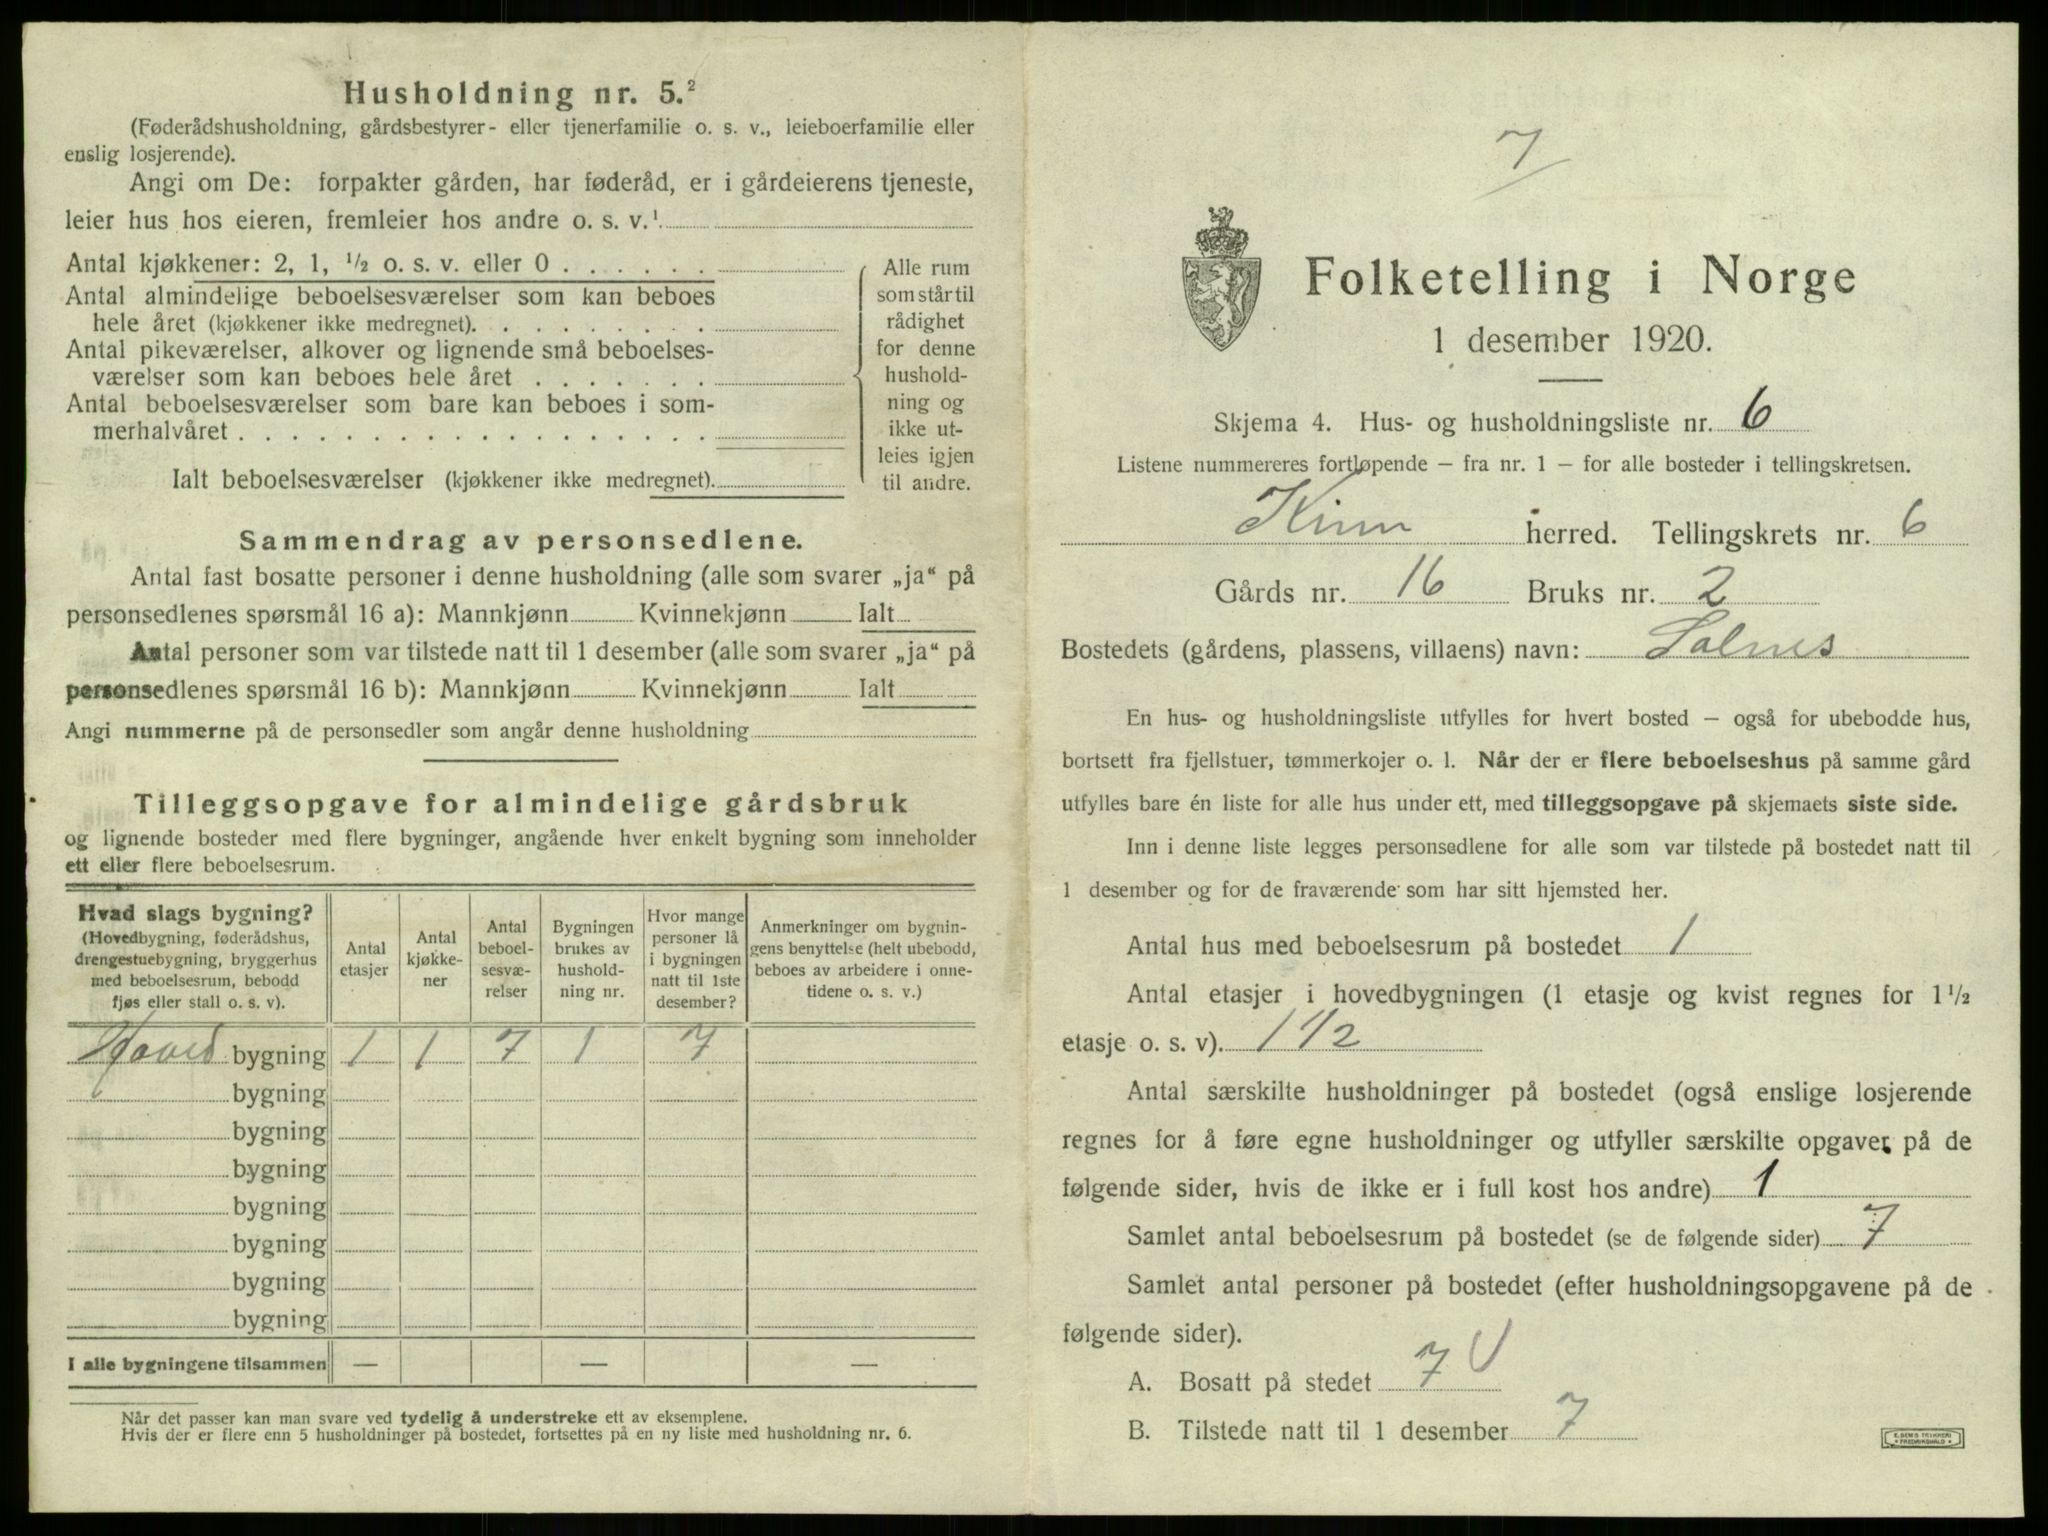 Husholdning nr. 5.²
(Føderådshusholdning, gårdsbestyrer- eller tjenerfamilie o. s. v., leieboerfamilie eller
enslig losjerende).
Angi om De: forpakter gården, har føderåd, er i gårdeierens tjeneste,
leier hus hos eieren, fremleier hos andre o. s. v.¹
Antal kjøkkener: 2, 1, ½ o. s. v. eller 0 . . . . . .
Antal almindelige beboelsesværelser som kan beboes
hele året (kjøkkener ikke medregnet). . . . . . . . .
Antal pikeværelser, alkover og lignende små beboelses-
værelser som kan beboes hele året . . . . . . .
Antal beboelsesværelser som bare kan beboes i som-
merhalvåret . . . . . . . . . . . . . . . . . .
Ialt beboelsesværelser (kjøkkener ikke medregnet).
Alle rum
som står til
rådighet
for denne
hushold-
ning og
ikke ut-
leies igjen
til andre.
Sammendrag av personsedlene.
Antal fast bosatte personer i denne husholdning (alle som svarer „ja“ på
personsedlenes spørsmål 16 a): Mannkjønn Kvinnekjønn Ialt
Antal personer som var tilstede natt til 1 desember (alle som svarer „ja“ på
personsedlenes spørsmål 16 b): Mannkjønn Kvinnekjønn Ialt
Angi nummerne på de personsedler som angår denne husholdning
Tilleggsopgave for almindelige gårdsbruk
og lignende bosteder med flere bygninger, angående hver enkelt bygning som inneholder
ett eller flere beboelsesrum.
Hvad slags bygning?
(Hovedbygning, føderådshus,
drengestuebygning, bryggerhus
med beboelsesrum, bebodd
fjøs eller stall o. s. v).
Antal
etasjer
Antal
kjøkke-
ner
Antal
beboel-
sesvæ-
relser
Bygningen
brukes av
hushold-
ning nr.
Hvor mange
personer lå
i bygningen
natt til 1ste
desember?
Anmerkninger om bygnin-
gens benyttelse (helt ubebodd,
beboes av arbeidere i onne-
tidene o. s. v.)
Hoved bygning 1 1 7 1 7
bygning
bygning
bygning
bygning
bygning
bygning
bygning
I alle bygningene tilsammen — — —
Når det passer kan man svare ved tydelig å understreke ett av eksemplene.
Hvis der er flere enn 5 husholdninger på bostedet, fortsettes på en ny liste med husholdning nr. 6.
7
Folketelling i Norge
1 desember 1920.
Skjema 4. Hus- og husholdningsliste nr. 6
Listene nummereres fortløpende — fra nr. 1 — for alle bosteder i tellingskretsen.
Kinn herred. Tellingskrets nr. 6
Gårds nr. 16 Bruks nr. 2
Bostedets (gårdens, plassens, villaens) navn: Solnes
En hus- og husholdningsliste utfylles for hvert bosted — også for ubebodde hus,
bortsett fra fjellstuer, tømmerkojer o. l. Når der er flere beboelseshus på samme gård
utfylles bare én liste for alle hus under ett, med tilleggsopgave på skjemaets siste side.
Inn i denne liste legges personsedlene for alle som var tilstede på bostedet natt til
1 desember og for de fraværende som har sitt hjemsted her.
Antal hus med beboelsesrum på bostedet 1
Antal etasjer i hovedbygningen (1 etasje og kvist regnes for 1½
etasje o. s. v). 1 1/2
Antal særskilte husholdninger på bostedet (også enslige losjerende
regnes for å føre egne husholdninger og utfyller særskilte opgaver på de
følgende sider, hvis de ikke er i full kost hos andre) 1
Samlet antal beboelsesrum på bostedet (se de følgende sider) 7
Samlet antal personer på bostedet (efter husholdningsopgavene på de
følgende sider).
A. Bosatt på stedet 7
B. Tilstede natt til 1 desember 7